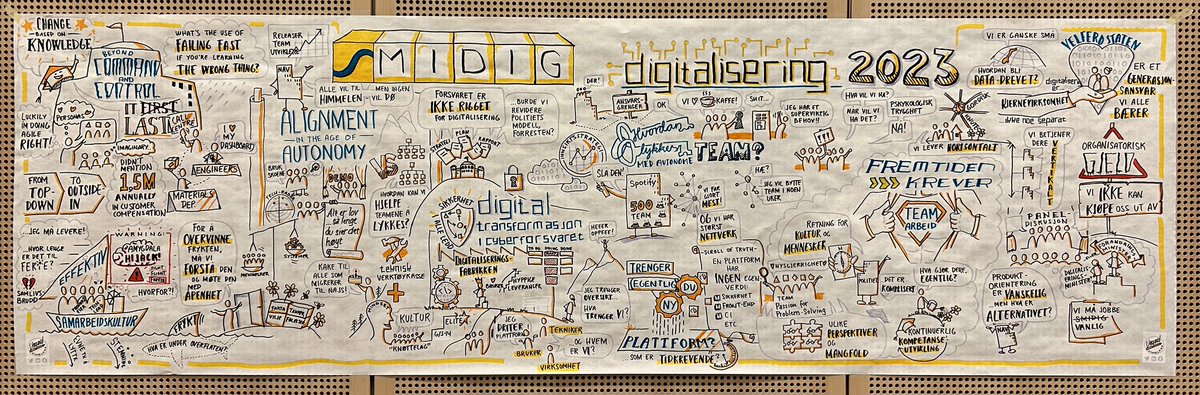 CHANGE
BASED ON
KNOWLEDGE
WHAT'S THE USE OF
FAILING FAST
IF YOU'RE LEARNING
THE WRONG THING?
RELEASER
TEAM
UTVIKLER
SMIDIG
digitalisering 2023
BEYOND
COMMAND
AND
CONTROL
IT FIRST
LAST
LUCKILY
I'M DOING
AGILE
RIGHT!
PERSONAS
IMAGINARY
CALL
CENTRE
I ♥ MY
DASHBOARD
ENGINEERS
FROM
TOP-
DOWN
TO
OUTSIDE
IN
DIDN'T
MENTION
1,5M
ANNUALLY
IN CUSTOMER
COMPENSATION
MATERIALS
DEP
NAV
ALLE VIL TIL
HIMMELEN
MEN INGEN
VIL DØ
ALIGNMENT
IN THE AGE OF
AUTONOMY
DEMO
Alt er lov
så lenge
du sier det
høyt
FORSVARET ER
IKKE RIGGET
FOR DIGITALISERING
BURDE VI
REVIDERE
POLITIETS
MODELL
FORRESTEN?
STRATEGI
PLAN
RAPPORT
HVORDAN KAN VI
HJELPE
TEAMENE Å
LYKKES?
SIKKERHET
I ALLE LEDD
digital
transformasjon
i cyberforsvaret
DIGITALISERINGS-
FABRIKKEN
TO DO
DOING
DONE
HYPPIGE
LEVERANSER
DER!
ANSVARS-
GRENGER
OK
VI ♥ KAFFE!
SHIT...
Hvordan
lykkes
MED AUTONOME
TEAM?
ADMINISTRATER
SLÅ DEN!
Spotify
500
TEAM
JEG HAR ET
SUPERVIKTIG
BEHOV!!
HÆ?
VI HAR
GJORT
MEST!
OG VI HAR
STØRST
NETTVERK
JEG VIL BYTTE
TEAM I NOEN
UKER
HVA VIL VI HA?
NÅR VIL VI
HA DET?
NÅ!
PSYKOLOGISK
TRYGGHET
NORDISK
VI LEVER HORISONTALT
VI BETJENER
DERE
VERTIKALT
HVORDAN BLI
DATA-DREVET?
VI ER GANSKE SMÅ
VELFERDSTATEN
ER ET
GENERASJONS-
ANSVAR
VI ALLE
BÆRER
digitalisering er
KJERNEVIRKSOMHET
...ikke noe separat
ORGANISATORISK
GJELD
VI
IKKE KAN
KJØPE OSS UT AV
FREMTIDEN
KREVER
TEAM
ARBEID
PANEL
DISKUSJON
...JEG MÅ LEVERE!
HVOR LENGE
ER DET TIL
FERIE?
EFFEKTIV
SAMLIVS
BRUDD
SAMARBEIDSKULTUR
WARNING!
AMYGDALA
HIJACK!
HVORFOR?!
FOR Å
OVERVINNE
FRYKTEN,
MÅ VI
FORSTÅ DEN
OG MØTE DEN
MED
ÅPENHET
FRYKT!!
HVA ER UNDER OVERFLATEN?
SYSTEMER
MENNESKER
KAKE TIL
ALLE SOM
MIGRERER
TIL NAIS!
TEKNISK
VERKTØYKASSE
KULTUR
"KNØTTELAG"
G/J-14
ELITE
JEG
DRITER
I
PLATTFORM
BRUKER
TEKNIKER
VIRKSOMHET
OG HVEM
ER VI?
JEG TRENGER
OVERSIKT.
HVA
TRENGER VI?
TRENGER
EGENTLIG
DU
NY
PLATTFORM?
SOM ER
TIDKREVENDE?
EN PLATTFORM
HAR
INGEN
VERDI:
SIKKERHET
FRONT-END
CI
ETC
RETNING FOR
KULTUR OG
MENNESKER
NYSGJERRIGHET
TEAM
Passion for
Problem-Solving
ULIKE
PERSPEKTIVER
OG
MANGFOLD
POLITIET
HVA GJØR DERE,
EGENTLIG?
DET ER
KOMPLISERT
KONTINUERLIG
KOMPETANSE-
UTVIKLING
PRODUKT-
ORIENTERING
ER VANSKELIG
MEN HVA ER
ALTERNATIVET?
NAV
FORANDRINGS
MINISTER
DIGITALIS-
ERINGS-
MINISTER
VI MÅ JOBBE
SMIDIG
VANLIG